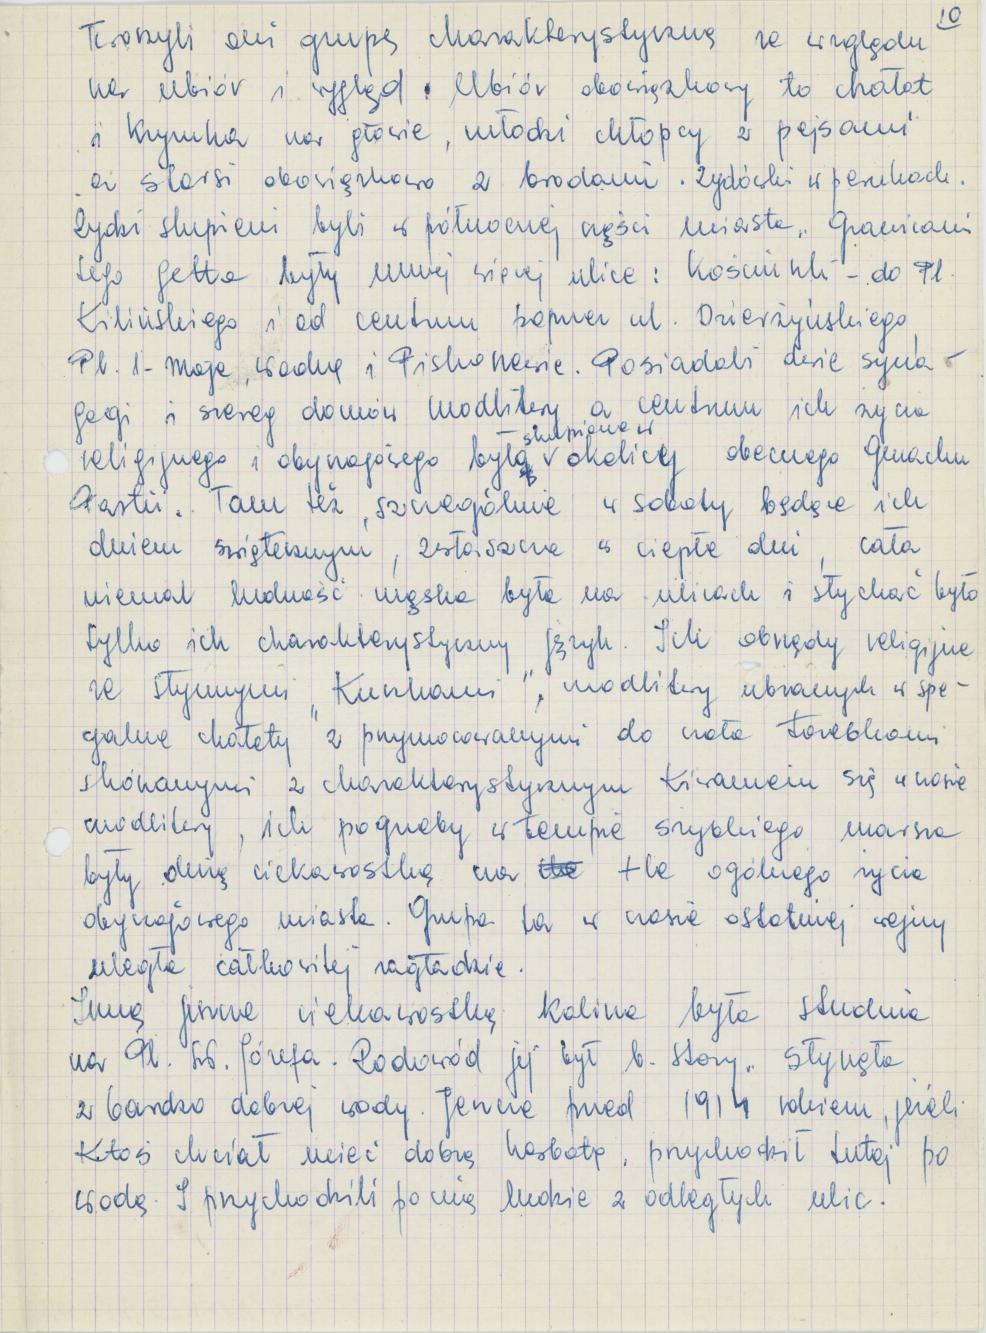 10
Tworzyli oni grupę charakterystyczną ze względu
na ubiór i wygląd. Ubiór obowiązkowy to chałat
i krymka na głowie, młodzi chłopcy z pejsami
a starsi obowiązkowo z brodami. Żydówki w perukach.
Żydzi skupieni byli w północnej części miasta. Granicami
tego getta były mniej więcej ulice: Kościuszki - do Pl.
Kilińskiego i od centrum poprzez ul. Dzierżyńskiego,
Pl. 1-Maja, wodną i Piskorzewie. Posiadali dwie syna-
gogi i szereg domów modlitwy a centrum ich życia
religijnego i obyczajowego było skupione w okolicy obecnego Gmachu
Partii. Tam też, szczególnie w soboty będące ich
dniem świątecznym, zwłaszcza w ciepłe dni, cała
niemal ludność męska była na ulicach i słychać było
tylko ich charakterystyczny język. Ich obrzędy religijne
ze słynnymi „Kuczkami”, modlitwy ubranych w spe-
cjalne chałaty z przymocowanymi do czoła torebkami
skórzanymi z charakterystycznym kiwaniem się w czasie
modlitwy, ich pogrzeby w tempie szybkiego marsza
były dużą ciekawostką na tle ogólnego życia
obyczajowego miasta. Grupa ta w czasie ostatniej wojny
uległa całkowitej zagładzie.
Inną jeszcze ciekawostką Kalisza była studnia
na Pl. św. Józefa. Rodowód jej był b. stary. Słynęła
z bardzo dobrej wody. Jeszcze przed 1914 rokiem, jeżeli
ktoś chciał mieć dobrą herbatę, przychodził tutaj po
wodę. I przychodzili po nią ludzie z odległych ulic.